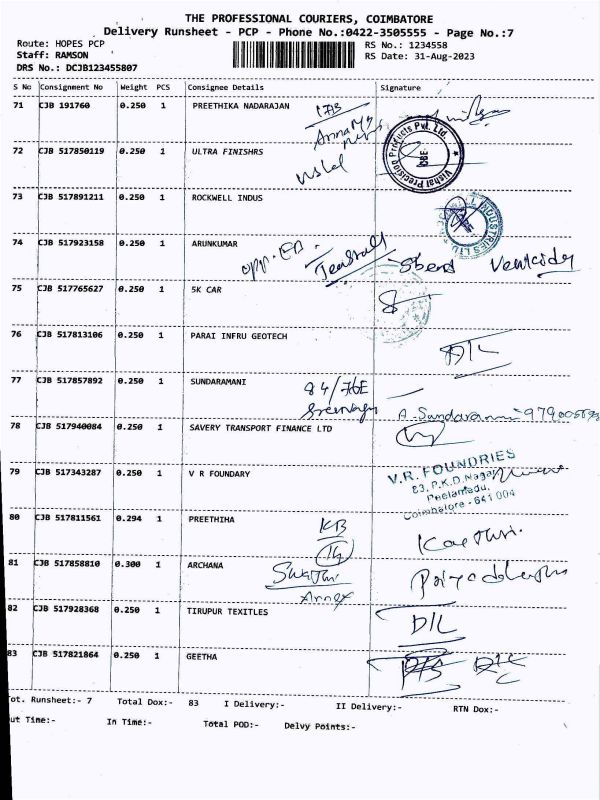 THE PROFESSIONAL COURIERS, COIMBATORE
Delivery Runsheet - PCP - Phone No.:0422-3505555 - Page No.:7
Route: HOPES PCP RS No.: 1234558
Staff: RAMSON RS Date: 31-Aug-2023
DRS No.: DCJB123455807
S No Consignment No Weight PCS Consignee Details Signature
71 CJB 191760 0.250 1 PREETHIKA NADARAJAN
72 CJB 517850119 0.250 1 ULTRA FINISHRS
Vishal Precision Products Pvt. Ltd.
CBE
73 CJB 517891211 0.250 1 ROCKWELL INDUS
74 CJB 517923158 0.250 1 ARUNKUMAR
opp.
75 CJB 517765627 0.250 1 SK CAR
76 CJB 517813106 0.250 1 PARAI INFRU GEOTECH
D/L
77 CJB 517857892 0.250 1 SUNDARAMANI
78 CJB 517940084 0.250 1 SAVERY TRANSPORT FINANCE LTD
79 CJB 517343287 0.250 1 V R FOUNDARY
V.R. FOUNDRIES
83, P.K.D. Nagar
Peelamedu,
Coimbatore - 641 004
80 CJB 517811561 0.294 1 PREETHIHA KB
81 CJB 517858810 0.300 1 ARCHANA Swathi
Annex
82 CJB 517928368 0.250 1 TIRUPUR TEXITLES D/L
83 CJB 517821864 0.250 1 GEETHA
ot. Runsheet:- 7 Total Dox:- 83 I Delivery:- II Delivery:- RTN Dox:-
ut Time:- In Time:- Total POD:- Delvy Points:-